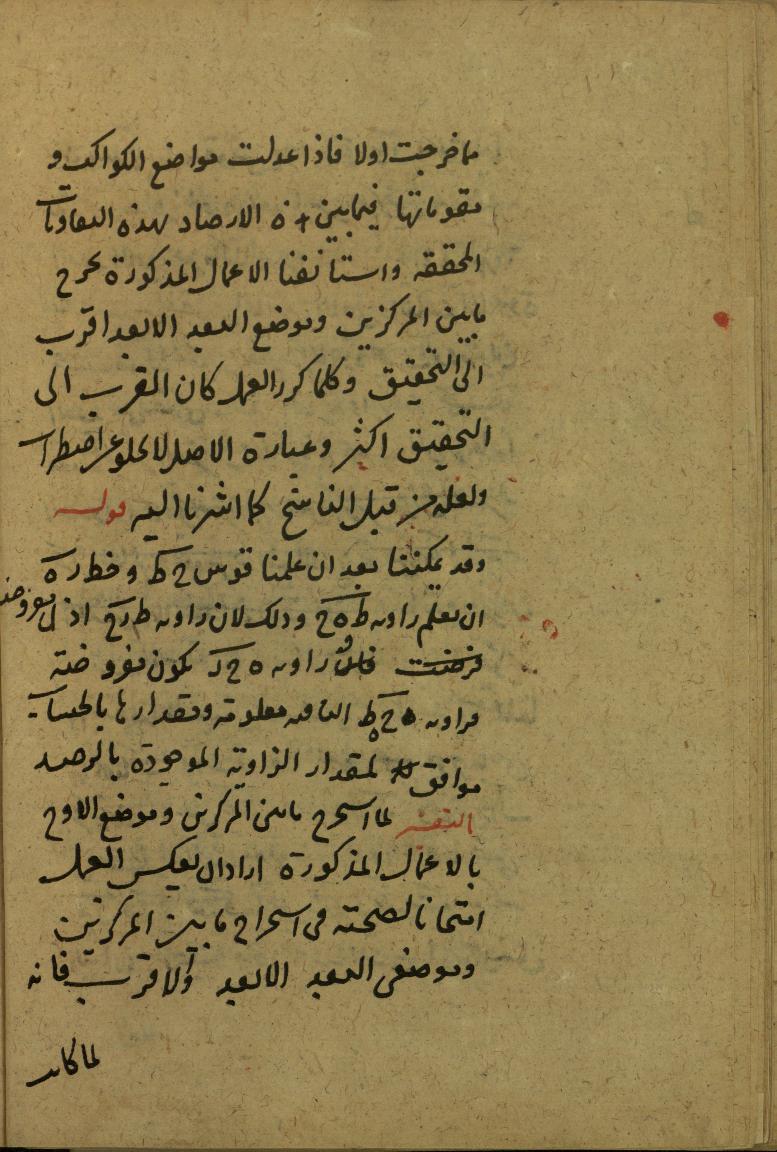 ما خرجت اولا فاذا عدلت مواضع الكواكب و
مقوماتها فيما بين هذه الارصاد بهذه التفاوتات
المحققه واستانفنا الاعمال المذكورة يخرج
ما بين المركزين وموضع البعد الابعد اقرب
الى التحقيق وكلما كرر العمل كان القرب الى
التحقيق اكثر وعبارة الاصل لا يخلو عن اضطراب
ولعله من قبل الناسخ كما اشرنا اليه قوله
وقد يمكننا بعد ان علمنا قوس ح ط وخط ر ه
ان يعلم زاويه ط ه ح وذلك لان زاويه
فلان زاويه ه ح يكون مفروضة
فزاويه الباقيه معلومة ومقدارها بالحساب
موافق لمقدار الزاوية الموجودة بالرصد
التفسير لما استخرج ما بين المركزين وموضع الاوج
بالاعمال المذكورة اراد ان يعكس العمل
امتحانا لصحته في استخراج ما بين المركزين
وموضعي البعد الابعد والاقرب فانه
لما كان